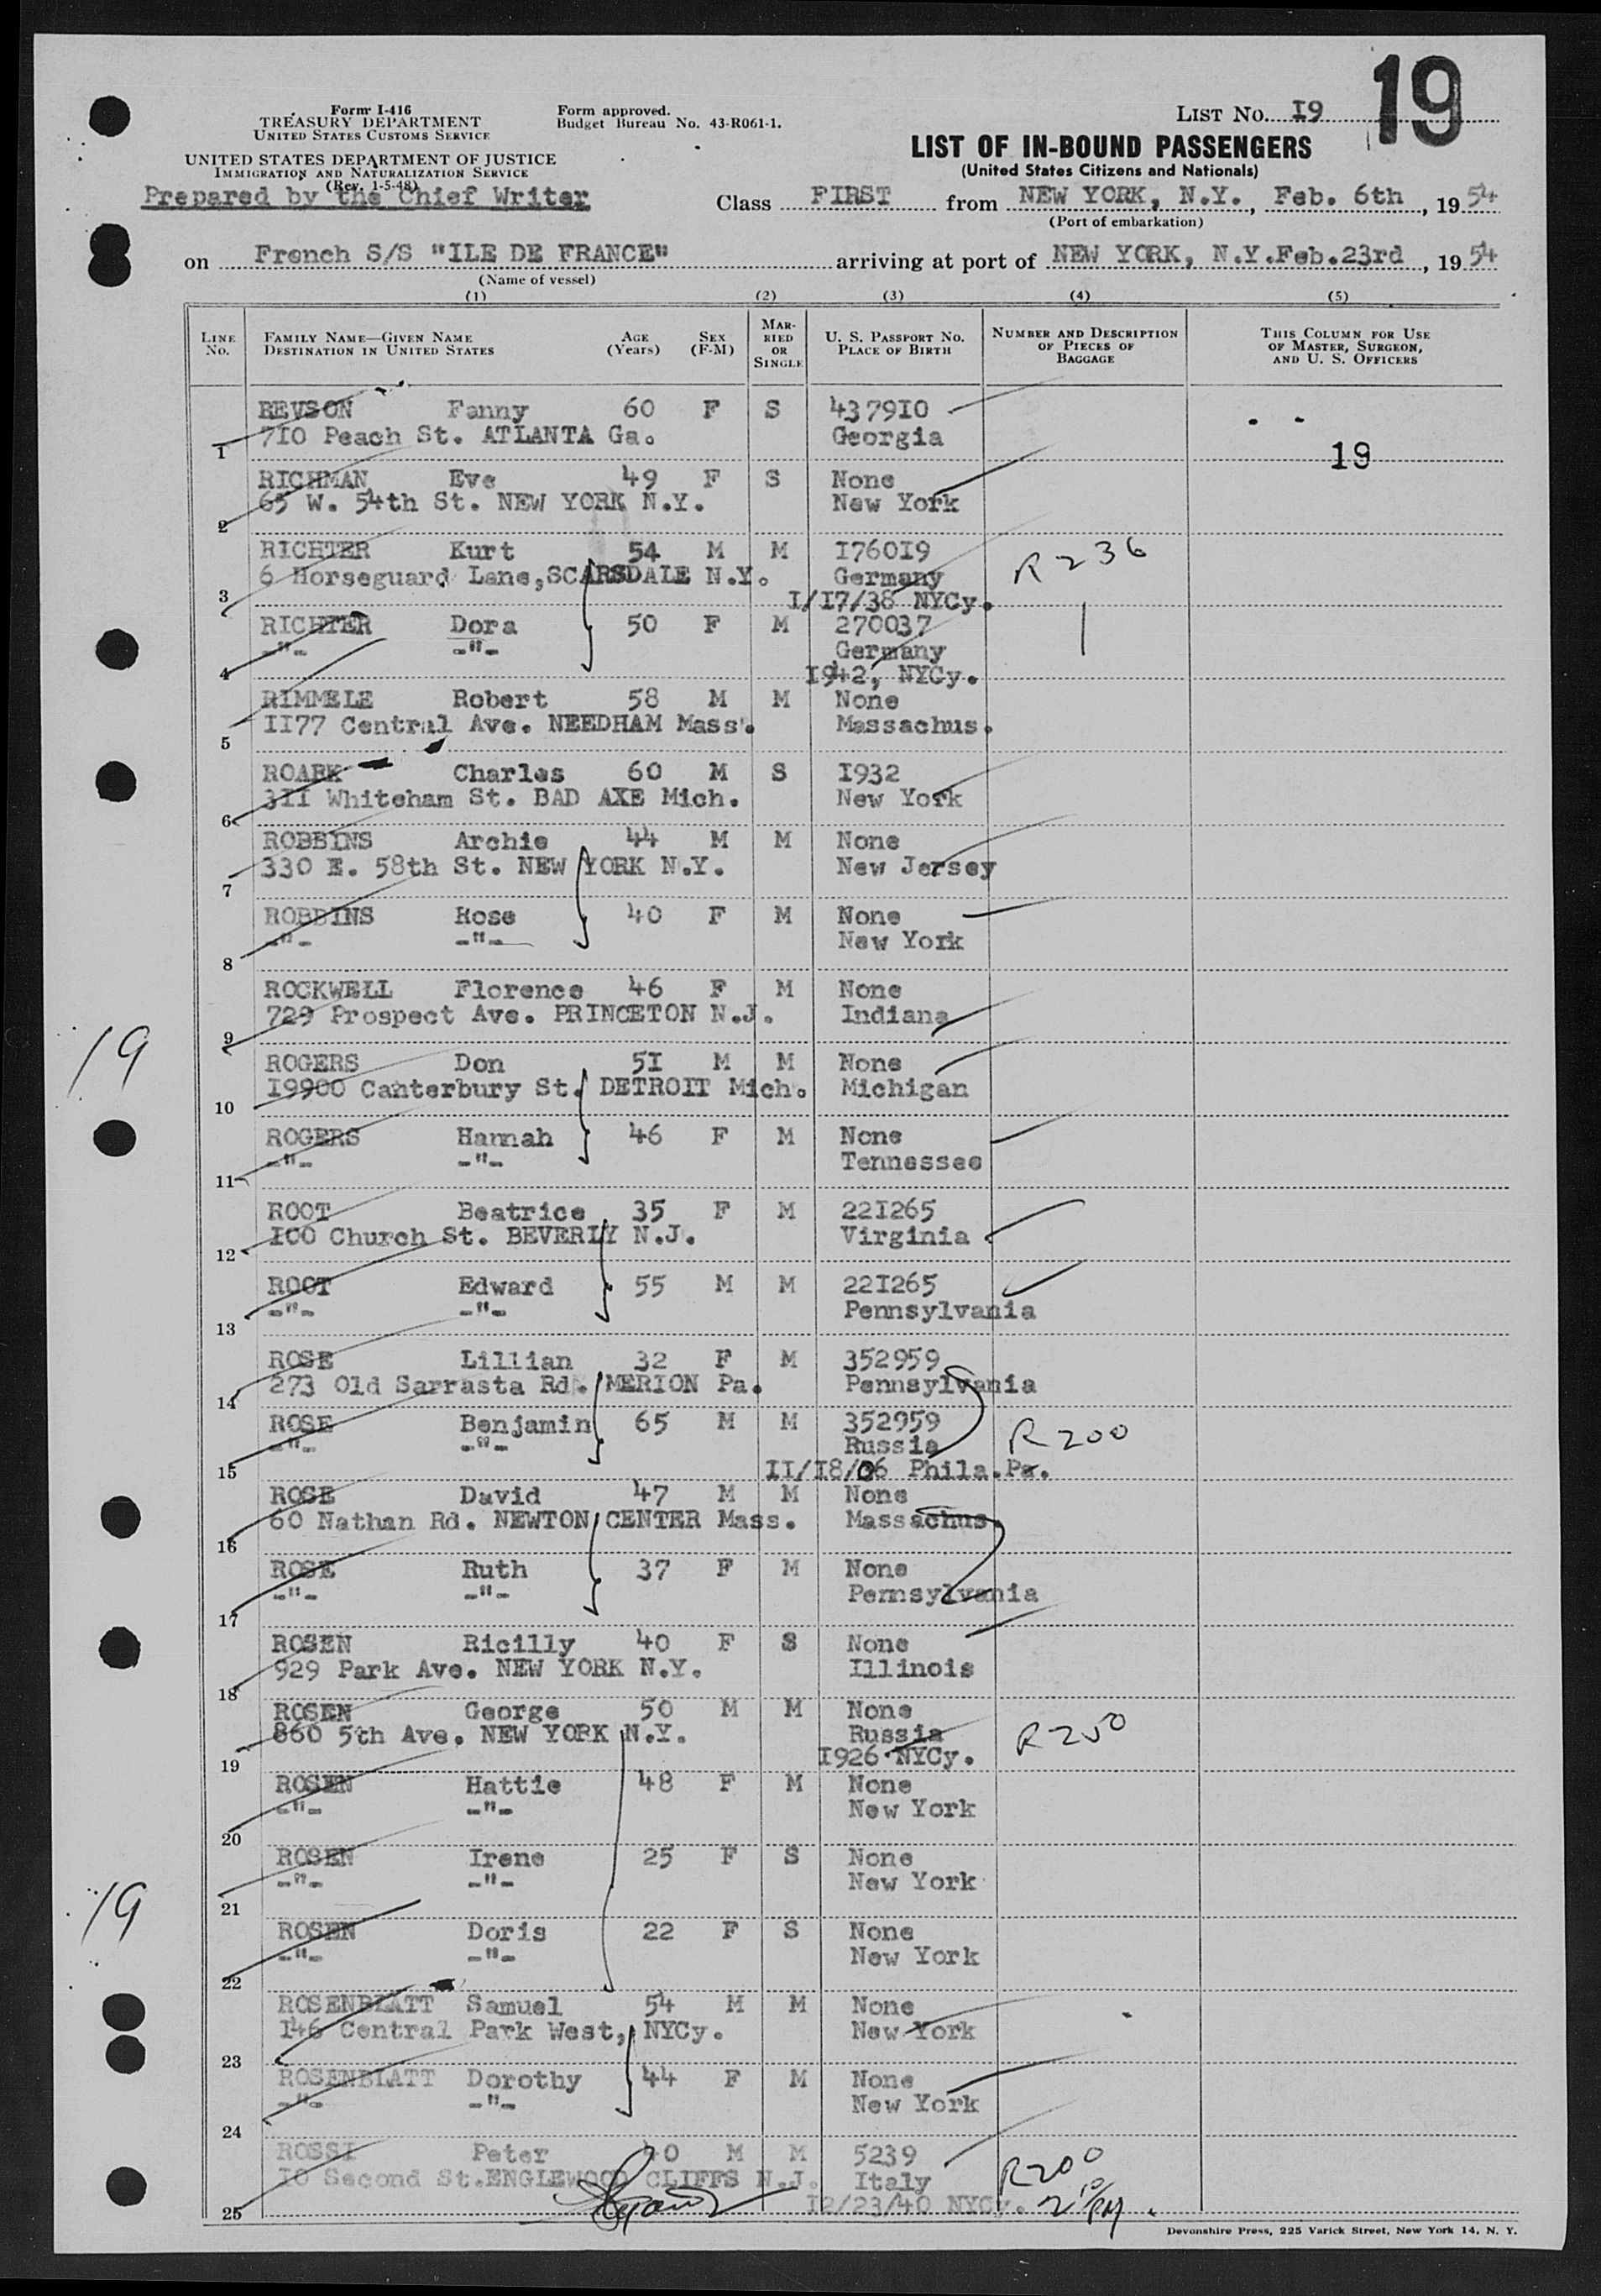 19
Form I-416
TREASURY DEPARTMENT
UNITED STATES CUSTOMS SERVICE
Form approved.
Budget Bureau No. 43-R061-1.
LIST NO. I9
LIST OF IN-BOUND PASSENGERS
(United States Citizens and Nationals)
UNITED STATES DEPARTMENT OF JUSTICE
IMMIGRATION AND NATURALIZATION SERVICE
(Rev. 1-5-48)
Prepared by the Chief Writer
Class FIRST from NEW YORK, N.Y., Feb. 6th, 19 54
(Port of embarkation)
on French S/S "ILE DE FRANCE" arriving at port of NEW YORK, N.Y.Feb.23rd, 19 54
(Name of vessel)
(1) (2) (3) (4) (5)
LINE NO. FAMILY NAME—GIVEN NAME DESTINATION IN UNITED STATES AGE (Years) SEX (F-M) MARRIED OR SINGLE U. S. PASSPORT NO. PLACE OF BIRTH NUMBER AND DESCRIPTION OF PIECES OF BAGGAGE THIS COLUMN FOR USE OF MASTER, SURGEON, AND U. S. OFFICERS
REVSON Fanny 60 F S 437910
710 Peach St. ATLANTA Ga. Georgia
1 19
RICHMAN Eve 49 F S None
65 W. 54th St. NEW YORK N.Y. New York
2
RICHTER Kurt 54 M M I760I9 R 236
6 Horseguard Lane,SCARSDALE N.Y. Germany
3 I/I7/38 NYCy.
RICHTER Dora 50 F M 270037
-"- -"- Germany
4 I942, NYCy.
RIMMELE Robert 58 M M None
II77 Central Ave. NEEDHAM Mass. Massachus.
5
ROARK Charles 60 M S I932
3II Whiteham St. BAD AXE Mich. New York
6
ROBBINS Archie 44 M M None
330 E. 58th St. NEW YORK N.Y. New Jersey
7
ROBBINS Rose 40 F M None
-"- -"- New York
8
ROCKWELL Florence 46 F M None
729 Prospect Ave. PRINCETON N.J. Indiana
9
19
ROGERS Don 5I M M None
I9900 Canterbury St. DETROIT Mich. Michigan
10
ROGERS Hannah 46 F M None
-"- -"- Tennessee
11
ROOT Beatrice 35 F M 22I265
I00 Church St. BEVERLY N.J. Virginia
12
ROOT Edward 55 M M 22I265
-"- -"- Pennsylvania
13
ROSE Lillian 32 F M 352959
273 Old Sarrasta Rd. MERION Pa. Pennsylvania
14
ROSE Benjamin 65 M M 352959 R 200
-"- -"- Russia
15 II/I8/06 Phila.Pa.
ROSE David 47 M M None
60 Nathan Rd. NEWTON CENTER Mass. Massachus.
16
ROSE Ruth 37 F M None
-"- -"- Pennsylvania
17
ROSEN Ricilly 40 F S None
929 Park Ave. NEW YORK N.Y. Illinois
18
ROSEN George 50 M M None
860 5th Ave. NEW YORK N.Y. Russia R 250
19 I926 NYCy.
ROSEN Hattie 48 F M None
-"- -"- New York
20
ROSEN Irene 25 F S None
-"- -"- New York
21
19
ROSEN Doris 22 F S None
-"- -"- New York
22
ROSENBLATT Samuel 54 M M None
I46 Central Park West, NYCy. New York
23
ROSENBLATT Dorothy 44 F M None
-"- -"- New York
24
ROSSI Peter 40 M M 5239 R200
I0 Second St.ENGLEWOOD CLIFFS N.J. Italy
25 I2/23/40 NYCy.
Devonshire Press, 225 Varick Street, New York 14, N. Y.